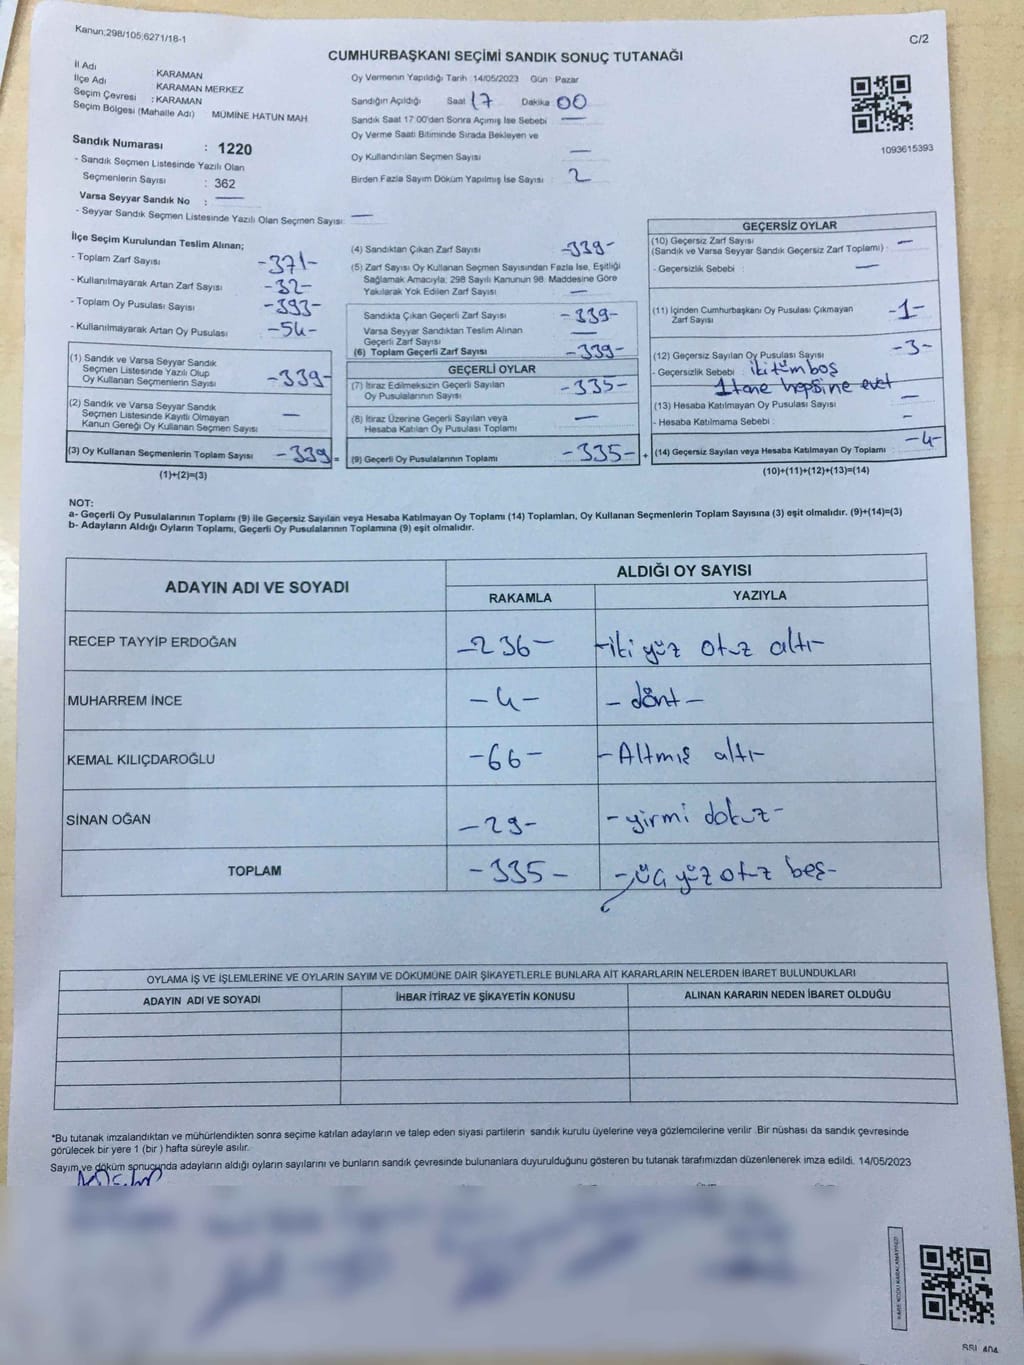 Kanun;298/105;6271/18-1
C/2
CUMHURBAŞKANI SEÇİMİ SANDIK SONUÇ TUTANAĞI
İl Adı : KARAMAN
İlçe Adı : KARAMAN MERKEZ
Seçim Çevresi : KARAMAN
Seçim Bölgesi (Mahalle Adı) MÜMİNE HATUN MAH
Sandık Numarası : 1220
- Sandık Seçmen Listesinde Yazılı Olan
Seçmenlerin Sayısı : 362
Varsa Seyyar Sandık No : —
- Seyyar Sandık Seçmen Listesinde Yazılı Olan Seçmen Sayısı: —
Oy Vermenin Yapıldığı Tarih :14/05/2023 Gün : Pazar
Sandığın Açıldığı Saat 17 Dakika 00
Sandık Saat 17:00'den Sonra Açımış İse Sebebi —
Oy Verme Saati Bitiminde Sırada Bekleyen ve
Oy Kullandırılan Seçmen Sayısı —
Birden Fazla Sayım Döküm Yapılmış İse Sayısı : 2
1093615393
İlçe Seçim Kurulundan Teslim Alınan;
- Toplam Zarf Sayısı -371-
- Kullanılmayarak Artan Zarf Sayısı -32-
- Toplam Oy Pusulası Sayısı -393-
- Kullanılmayarak Artan Oy Pusulası -54-
(1) Sandık ve Varsa Seyyar Sandık
Seçmen Listesinde Yazılı Olup
Oy Kullanan Seçmenlerin Sayısı -339-
(2) Sandık ve Varsa Seyyar Sandık
Seçmen Listesinde Kayıtlı Olmayan
Kanun Gereği Oy Kullanan Seçmen Sayısı —
(3) Oy Kullanan Seçmenlerin Toplam Sayısı -339- =
(1)+(2)=(3)
(4) Sandıktan Çıkan Zarf Sayısı -339-
(5) Zarf Sayısı Oy Kullanan Seçmen Sayısından Fazla İse, Eşitliği
Sağlamak Amacıyla, 298 Sayılı Kanunun 98. Maddesine Göre
Yakılarak Yok Edilen Zarf Sayısı —
Sandıkta Çıkan Geçerli Zarf Sayısı -339-
Varsa Seyyar Sandıktan Teslim Alınan
Geçerli Zarf Sayısı —
(6) Toplam Geçerli Zarf Sayısı -339-
GEÇERLİ OYLAR
(7) İtiraz Edilmeksizin Geçerli Sayılan
Oy Pusulalarının Sayısı -335-
(8) İtiraz Üzerine Geçerli Sayılan veya
Hesaba Katılan Oy Pusulası Toplamı —
(9) Geçerli Oy Pusulalarının Toplamı -335- +
GEÇERSİZ OYLAR
(10) Geçersiz Zarf Sayısı
(Sandık ve Varsa Seyyar Sandık Geçersiz Zarf Toplamı) : —
- Geçersizlik Sebebi : —
(11) İçinden Cumhurbaşkanı Oy Pusulası Çıkmayan
Zarf Sayısı -1-
(12) Geçersiz Sayılan Oy Pusulası Sayısı -3-
- Geçersizlik Sebebi : iki tüm boş
1 tane hepsine evet
(13) Hesaba Katılmayan Oy Pusulası Sayısı —
- Hesaba Katılmama Sebebi : —
(14) Geçersiz Sayılan veya Hesaba Katılmayan Oy Toplamı : -4-
(10)+(11)+(12)+(13)=(14)
NOT:
a- Geçerli Oy Pusulalarının Toplamı (9) ile Geçersiz Sayılan veya Hesaba Katılmayan Oy Toplamı (14) Toplamları, Oy Kullanan Seçmenlerin Toplam Sayısına (3) eşit olmalıdır. (9)+(14)=(3)
b- Adayların Aldığı Oyların Toplamı, Geçerli Oy Pusulalarının Toplamına (9) eşit olmalıdır.
ADAYIN ADI VE SOYADI ALDIĞI OY SAYISI
RAKAMLA YAZIYLA
RECEP TAYYİP ERDOĞAN -236- -iki yüz otuz altı-
MUHARREM İNCE -4- -dönt-
KEMAL KILIÇDAROĞLU -66- -Altmış altı-
SİNAN OĞAN -29- -yirmi dokuz-
TOPLAM -335- -üç yüz otuz beş-
OYLAMA İŞ VE İŞLEMLERİNE VE OYLARIN SAYIM VE DÖKÜMÜNE DAİR ŞİKAYETLERLE BUNLARA AİT KARARLARIN NELERDEN İBARET BULUNDUKLARI
ADAYIN ADI VE SOYADI İHBAR İTİRAZ VE ŞİKAYETİN KONUSU ALINAN KARARIN NEDEN İBARET OLDUĞU
*Bu tutanak imzalandıktan ve mühürlendikten sonra seçime katılan adayların ve talep eden siyasi partilerin sandık kurulu üyelerine veya gözlemcilerine verilir .Bir nüshası da sandık çevresinde
görülecek bir yere 1 (bir ) hafta süreyle asılır.
Sayım ve döküm sonucunda adayların aldığı oyların sayılarını ve bunların sandık çevresinde bulunanlara duyurulduğunu gösteren bu tutanak tarafımızdan düzenlenerek imza edildi. 14/05/2023